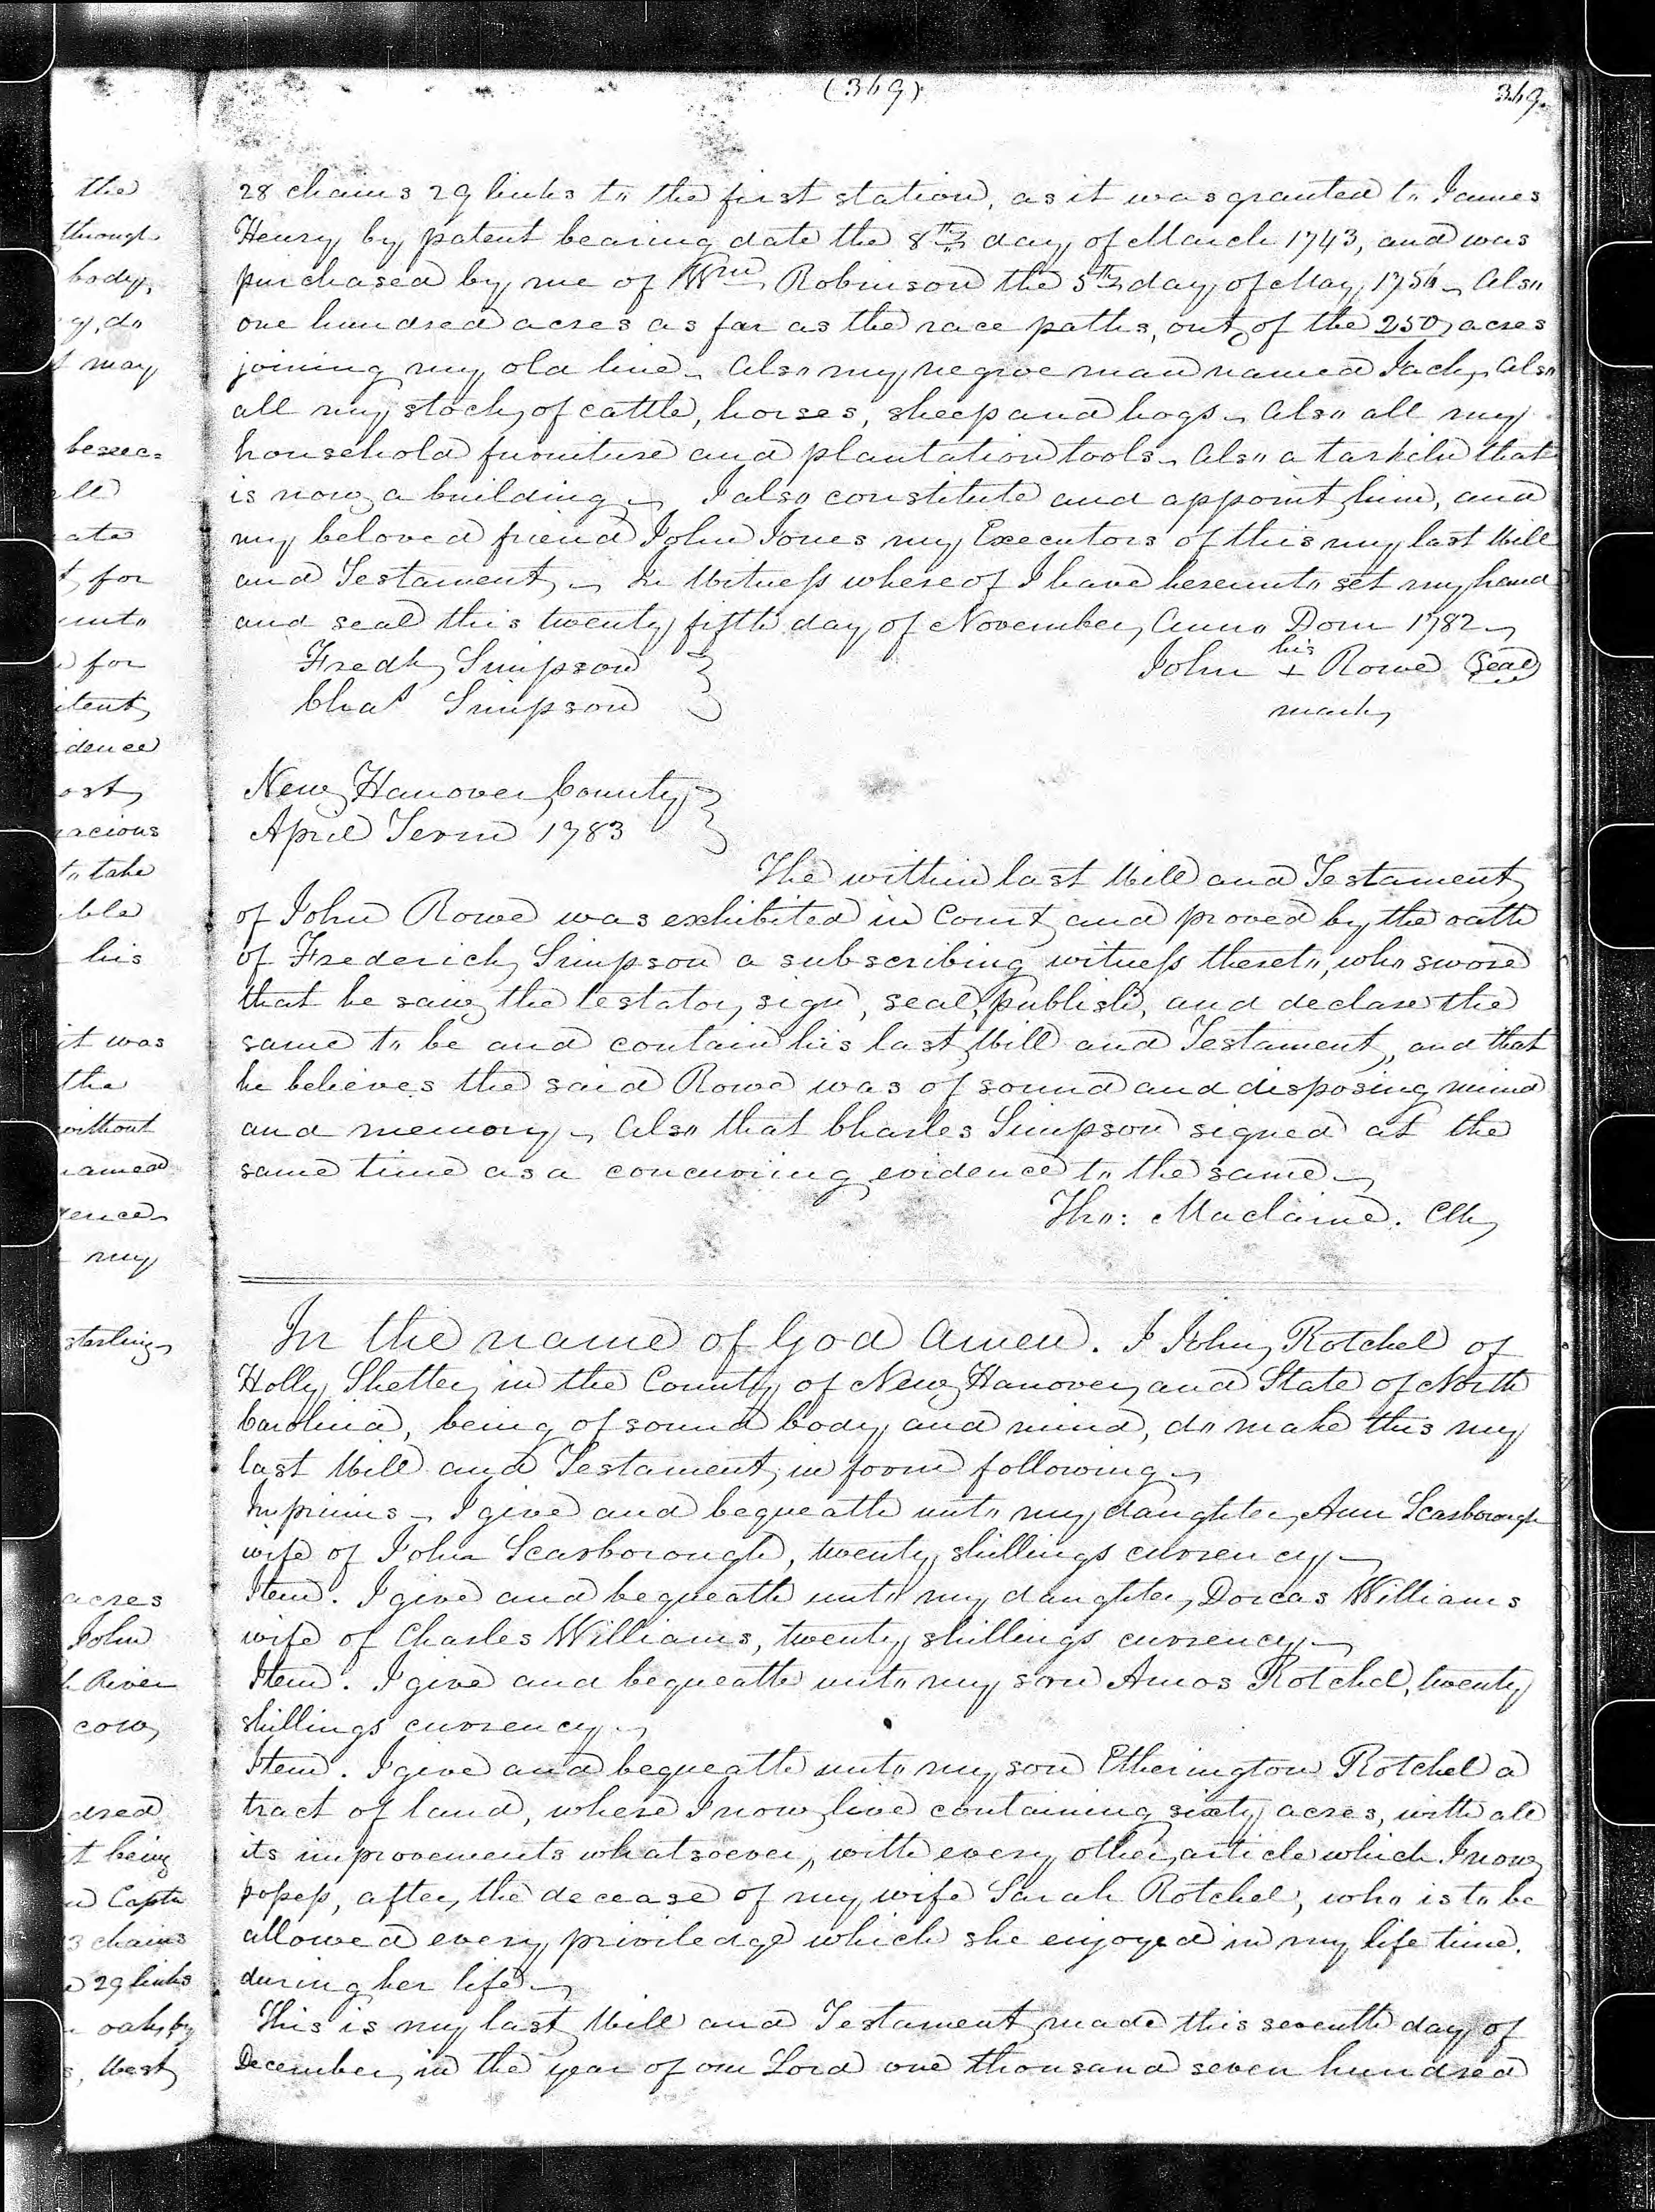 (369)
369.
the
through
body,
do
may
all
ate
for
unto
for
dence
acious
to take
ible
his
it was
the
without
named
my
sterling
acres
John
River
cow,
dred
it being
Captn
3 chains
29 links
oak, by
West
28 chains 29 links to the first station, as it was granted to James
Henry by patent bearing date the 8th day of March 1743, and was
purchased by me of Wm Robinson the 5th day of May, 1756 - Also
one hundred acres as far as the race paths, out of the 250 acres
joining my old line - Also my negroe man named Jack, Also
all my stock, of cattle, horses, sheep and hogs - Also all my
household furniture and plantation tools - Also a tarkiln that
is now a building - I also constitute and appoint him, and
my beloved friend John Jones my Executors of this my last Will
and Testament - In Witness whereof I have hereunto set my hand
and seal this twenty fifth day of November, Anno Dom 1782 -
Fredk Simpson
Chas Simpson
his
John + Rowe Seal
mark
New Hanover County
April Term 1783
The within last Will and Testament
of John Rowe was exhibited in Court and proved by the oath
of Frederick Simpson a subscribing witness thereto, who swore
that he saw the testator sign, seal, publish, and declare the
same to be and contain his last Will and Testament, and that
he believes the said Rowe was of sound and disposing mind
and memory - Also that Charles Simpson signed at the
same time as a concurring evidence to the same -
Tho: Maclaine. Clk
In the name of God Amen. I John Rotchel of
Holly Shelter, in the County of New Hanover, and State of North
Carolina, being of sound body and mind, do make this my
last Will and Testament, in form following -
Inprimis - I give and bequeath unto my daughter, Ann Scarborough
wife of John Scarborough, twenty shillings currency -
Item. I give and bequeath unto my daughter, Dorcas Williams
wife of Charles Williams, twenty shillings currency -
Item. I give and bequeath unto my son Amos Rotchel, twenty
shillings currency -
Item. I give and bequeath unto my son Etherington Rotchel a
tract of land, where I now live containing sixty acres, with all
its improvements whatsoever, with every other article which I now
possess, after the decease of my wife Sarah Rotchel, who is to be
allowed every priviledge which she enjoyed in my life time.
during her life -
This is my last Will and Testament, made this seventh day of
December, in the year of our Lord one thousand seven hundred